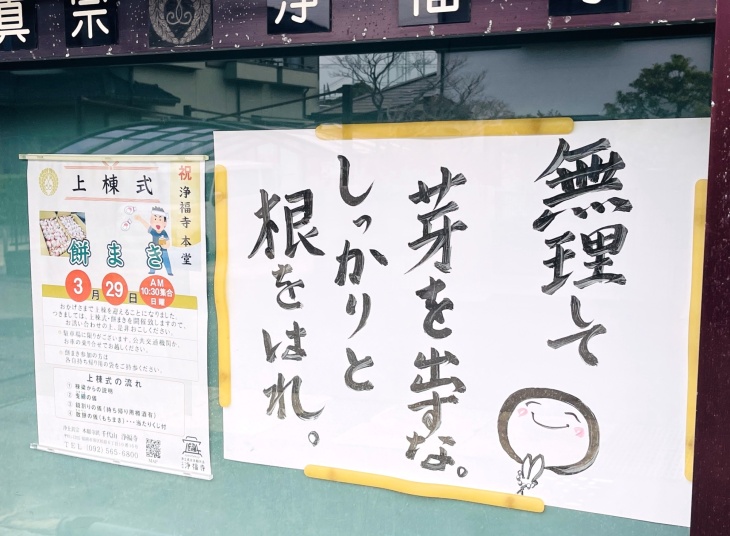 真宗 浄福寺
無理して
芽を出すな。
しっかりと
根をはれ。
祝 浄福寺 本堂
上棟式
餅まき
3月29日
AM
10:30集合
日曜
おかげさまで上棟を迎えることになりました。
つきましては、上棟式・餅まきを開催致しますので、
お誘い合わせの上、是非お越しください。
お車の乗り合せでお越しください。
上棟式の流れ
TEL (092)565-6800
浄福寺